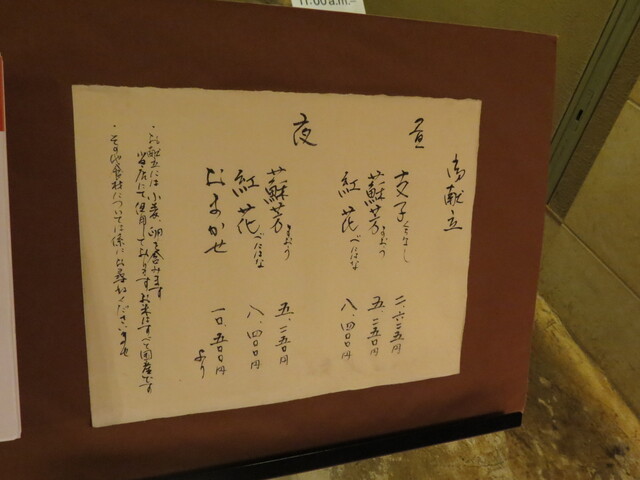 11:00 a.m.–
御献立
昼
支子 くちなし 二、六二五円
蘇芳 すおう 五、二五〇円
紅花 べにはな 八、四〇〇円
夜
蘇芳 すおう 五、二五〇円
紅花 べにはな 八、四〇〇円
おまかせ 一〇、五〇〇円より
・お献立には小麦、卵を含みます
当店にて使用しておりますお米はすべて国産です
・その他食材については係にお尋ねくださいませ